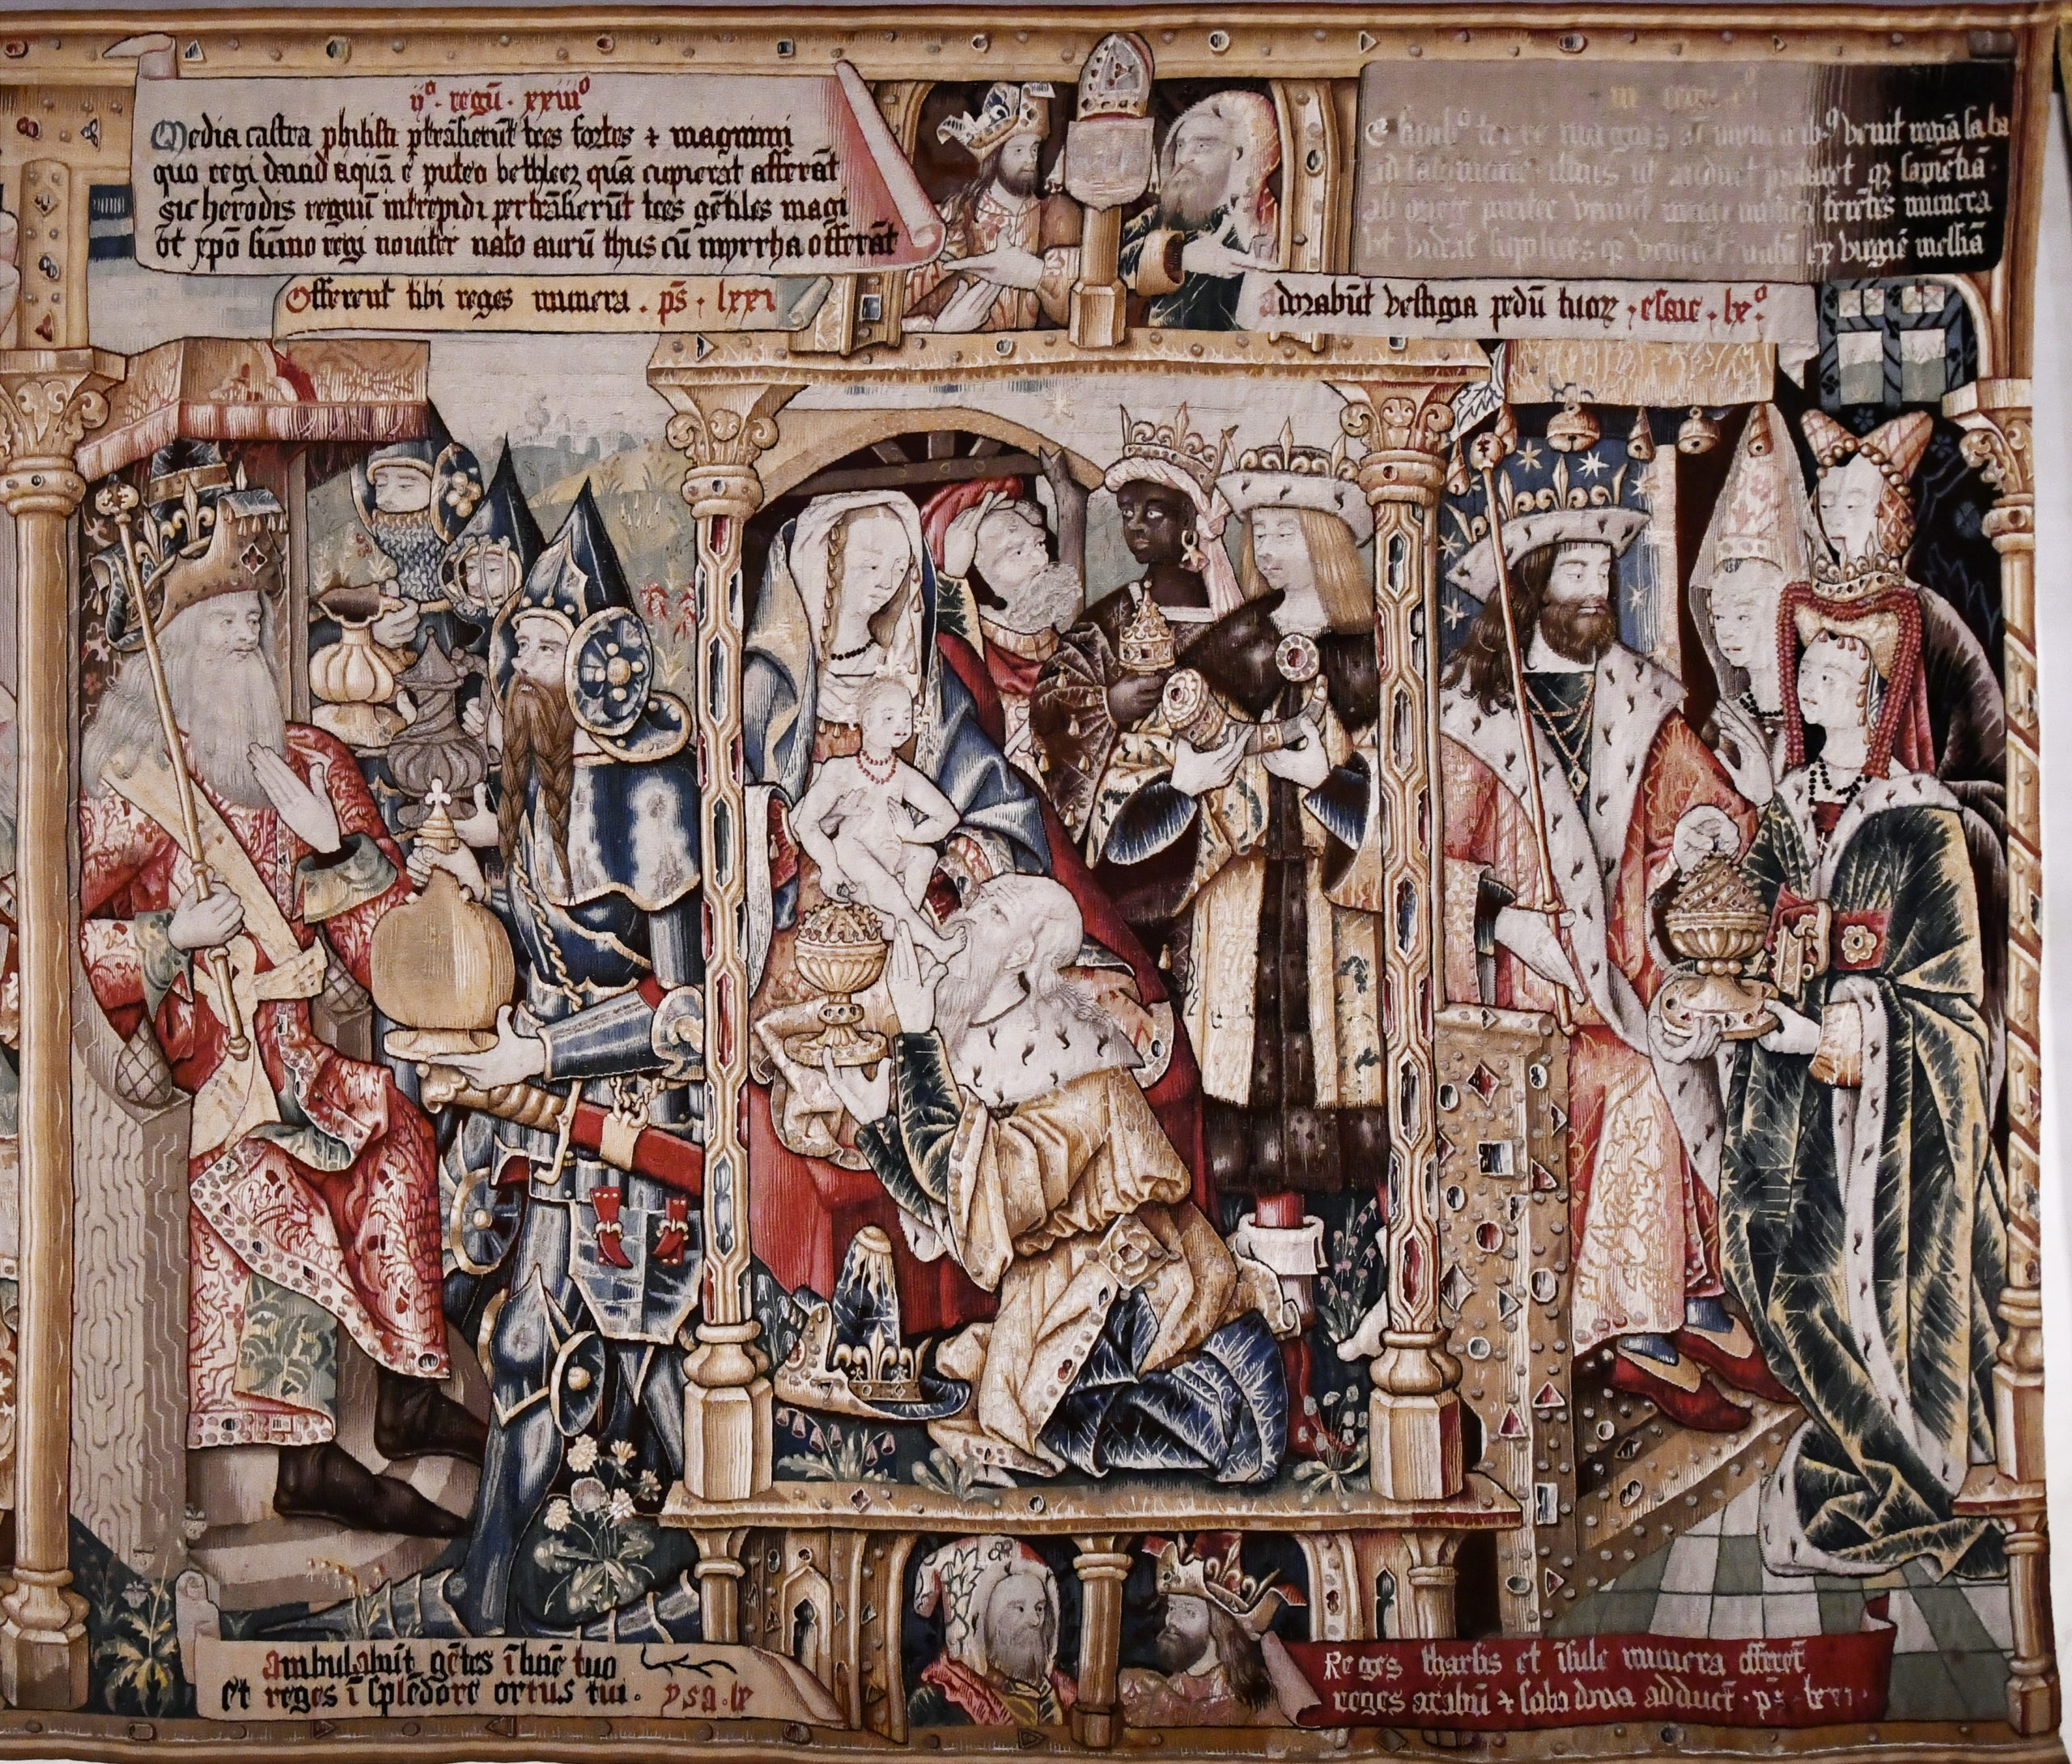 ijº · regū · xxiiiº
Media castra philisti ptrāsierūt tres fortes & magnimi
quo regi david aquā e puteo bethleez quā cupierat afferāt
sic herodis regnū intrepidi pertrāsierūt tres gētiles magi
vt xpo sūmo regi noviter nato aurū thus cū myrrha offerāt
Offerent tibi reges munera . ps . lxxi
terre venit regīa saba
ut qz sapiētiā .
ab magi ferētes munera
vt qz ex virgīe messiā
adorabūt vestigia pedū tuorz . esaie . lxº
ambulabūt gētes ī lumīe tuo
et reges ī splēdore ortus tui . ysa . lx
Reges tharsis et īsule munera offerēt
reges arabū & saba dona adducēt . ps . lxxi .